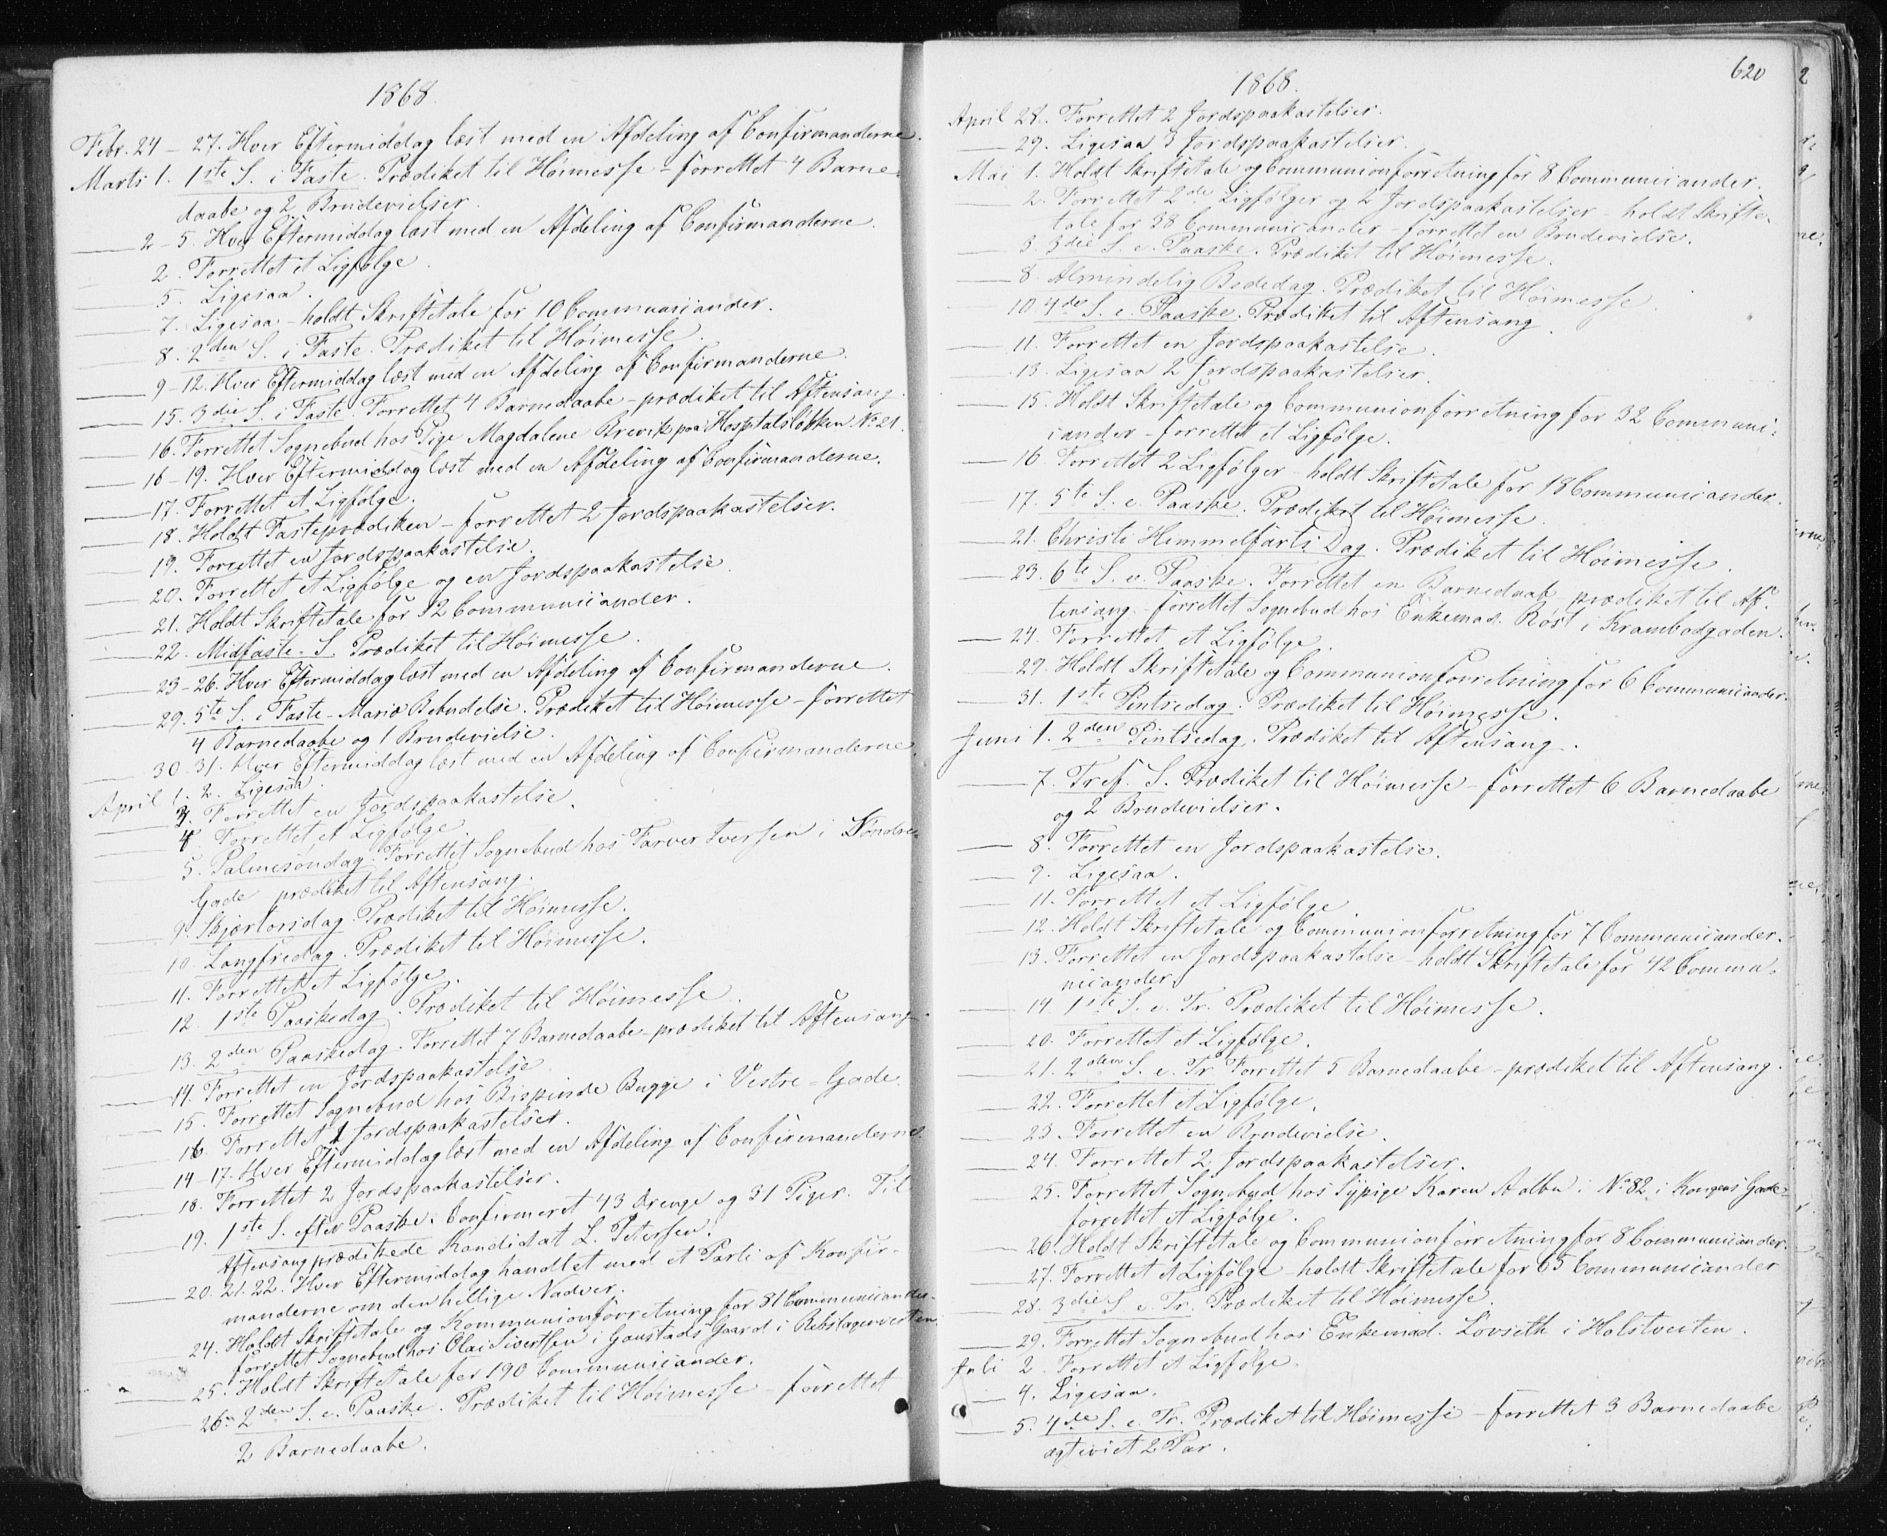 1868.
Febr. 24 – 27. Hver Eftermiddag læst med en Afdeling af Confirmanderne.
Marts 1. 1ste S. i Faste. Prædiket til Høimesse – forrettet 4 Barne-
daabe og 2 Brudevielser.
— 2 – 5. Hver Eftermiddag læst med en Afdeling af Confirmanderne.
— 2. Forrettet et Ligfølge.
— 5. Ligesaa.
— 7. Ligesaa – holdt Skriftetale for 10 Communicander.
— 8. 2den S. i Faste. Prædiket til Høimesse.
— 9 – 12. Hver Eftermiddag læst med en Afdeling af Confirmanderne.
— 15. 3die S. i Faste. Forrettet 4 Barnedaabe – prædiket til Aftensang.
— 16. Forrettet Sognebud hos Pige Magdalene Brevik paa Hosptalsløkken No 21.
— 16 – 19. Hver Eftermiddag læst med en Afdeling af Confirmanderne.
— 17. Forrettet et Ligfølge.
— 18. Holdt Fasteprædiken – forrettet 2 Jordspaakastelser.
— 19. Forrettet en Jordspaakastelse.
— 20. Forrettet et Ligfølge og en Jordspaakastelse.
— 21. Holdt Skriftetale for 32 Communicander.
— 22. Midfaste-S. Prædiket til Høimesse.
— 23 – 26. Hver Eftermiddag læst med en Afdeling af Confirmanderne.
— 29. 5te S. i Faste – Mariæ Bebudelse. Prædiket til Høimesse – forrettet
4 Barnedaabe og 1 Brudevielse.
— 30. 31. Hver Eftermiddag læst med en Afdeling af Confirmanderne.
April 1. 2. Ligesaa.
— 3. Forrettet en Jordspaakastelse.
— 4. Forrettet et Ligfølge.
— 5. Palmesøndag. Forrettet Sognebud hos Farver Iversen i Søndre
Gade prædiket til Aftensang.
— 9. Skjærtorsdag. Prædiket til Høimesse.
— 10. Langfredag. Prædiket til Høimesse.
— 11. Forrettet et Ligfølge.
— 12. 1ste Paaskedag. Prædiket til Høimesse.
— 13. 2den Paaskedag. Forrettet 7 Barnedaabe – prædiket til Aftensang.
— 14. Forrettet en Jordspaakastelse.
— 15. Forrettet Sognebud hos Bispinde Bugge i Vestre-Gade.
— 16. Forrettet Jordspaakastelser.
— 14 – 17. Hver Eftermiddag læst med en Afdeling af Confirmanderne.
— 18. Forrettet 2 Jordspaakastelser.
— 19. 1ste S. efter Paaske. Confirmeret 43 Drenge og 31 Piger. Til
Aftensang prædikede Kandidat L. Petersen.
— 20. 21. 22. Hver Eftermiddag handlet med et Parti af Konfir-
manderne om den hellige Nadver.
— 24. Holdt Skriftetale og Kommunionforretning for 81 Communicander.
forrettet Sognebud hos Olai Sivertsen i Gaustads Gaard i Rebslagerveiten
— 25. Holdt Skriftetale for 190 Communicander.
— 26. 2den S. e. Paaske. Prædiket til Høimesse – forrettet
2 Barnedaabe.
1868.
620
April 28. Forrettet 2 Jordspaakastelser.
— 29. Ligesaa 3 Jordspaakastelser.
Mai 1. Holdt Skriftetale og Communionforretning for 8 Communicander.
— 2. Forrettet 2de Ligfølger og 2 Jordspaakastelser – holdt Skrifte-
tale for 38 Communicander – forrettet en Brudevielse.
— 3. 3die S. e. Paaske. Prædiket til Høimesse.
— 8. Almindelig Bededag. Prædiket til Høimesse.
— 10. 4de S. e. Paaske. Prædiket til Aftensang.
— 11. Forrettet en Jordspaakastelse.
— 13. Ligesaa 2 Jordspaakastelser.
— 15. Holdt Skriftetale og Communionforretning for 32 Communi-
cander – forrettet et Ligfølge.
— 16. Forrettet 2 Ligfølger – holdt Skriftetale for 18 Communicander.
— 17. 5te S. e. Paaske. Prædiket til Høimesse.
— 21. Christi Himmelfarts Dag. Prædiket til Høimesse.
— 23. 6te S. e. Paaske. Forrettet en Barnedaab prædiket til Af-
tensang. forrettet Sognebud hos Enkemad. Røst i Krambodgaden.
— 24. Forrettet et Ligfølge.
— 29. Holdt Skriftetale og Communionforretning for 6 Communicander.
— 31. 1ste Pintsedag. Prædiket til Høimesse.
Juni 1. 2den Pintsedag. Prædiket til Aftensang.
— 7. Tref. S. Prædiket til Høimesse – forrettet 6 Barnedaabe
og 2 Brudevielser.
— 8. Forrettet en Jordspaakastelse.
— 9. Ligesaa.
— 11. Forrettet et Ligfølge
— 12. Holdt Skriftetale og Communionforretning for 7 Communicander.
— 13. Forrettet en Jordspaakastelse – holdt Skriftetale for 42 Commu-
nicander.
— 14. 1ste S. e. Tr. Prædiket til Høimesse.
— 20. Forrettet et Ligfølge.
— 21. 2den S. e. Tr. Forrettet 5 Barnedaabe – prædiket til Aftensang.
— 22. Forrettet et Ligfølge.
— 23. Forrettet en Brudevielse.
— 24. Forrettet 2 Jordspaakastelser.
— 25. Forrettet Sognebud hos Sypige Karen Aalbu i No 82 i Kongens Gade-
forrettet et Ligfølge.
— 26. Holdt Skriftetale og Communionforretning for 8 Communicander.
— 27. Forrettet et Ligfølge – holdt Skriftetale for 65 Communicander
— 28. 3die S. e. Tr. Prædiket til Høimesse.
— 29. Forrettet Sognebud hos Enkemad. Lovseth i Holstveiten.
Juli 2. Forrettet et Ligfølge.
— 4. Ligesaa.
— 5. 4de S. e. Tr. Prædiket til Høimesse – forrettet 3 Barnedaabe
ægteviet 2 Par.